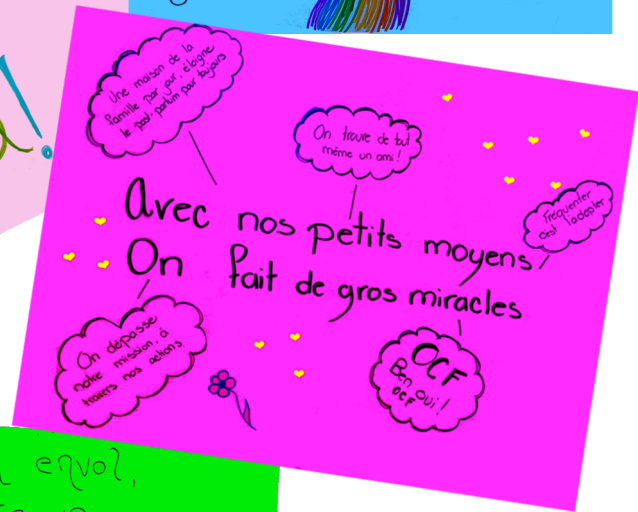 Une maison de la
famille par jour, éloigne
le post-partum pour toujours
On trouve de tout
même un ami!
Fréquenter
c'est l'adopter
Avec nos petits moyens
On fait de gros miracles
On dépasse
notre mission, à
travers nos actions
OCF
Ben oui!
OCF
envol,